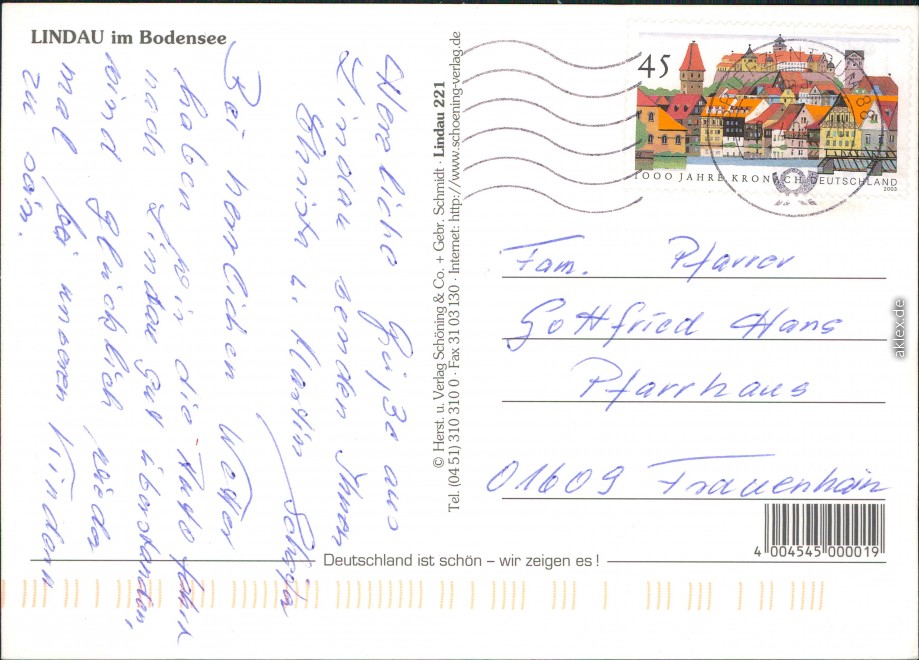 LINDAU im Bodensee
Herzliche Grüße aus
Lindau senden Ihnen
Christa u. Martin
Bei herrlichen Wetter
haben wir die Auto fahrt
nach Lindau gut überstanden,
sind glücklich wieder
mal bei unseren Kindern
zu sein.
© Herst. u. Verlag Schöning & Co. + Gebr. Schmidt · Lindau 221
Tel. (04 51) 310 310 0 · Fax 31 03 130 · Internet: http://www.schoening-verlag.de
45
1000 JAHRE KRONACH DEUTSCHLAND
2003
Fam. Pfarrer
Gottfried Hans
Pfarrhaus
01609 Frauenhain
4 004545 000019
Deutschland ist schön – wir zeigen es !
aklex.de